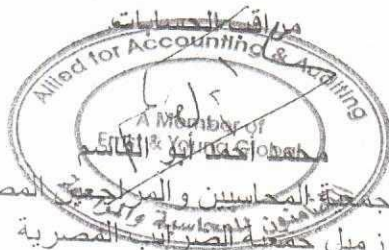 مراقب الحسابات
Allied for Accounting & Auditing
A Member of
Ernst & Young Global
محمد أحمد أبو القاسم
جمعية المحاسبين و المراجعين المص
زميل جمعية الضرائب المصرية